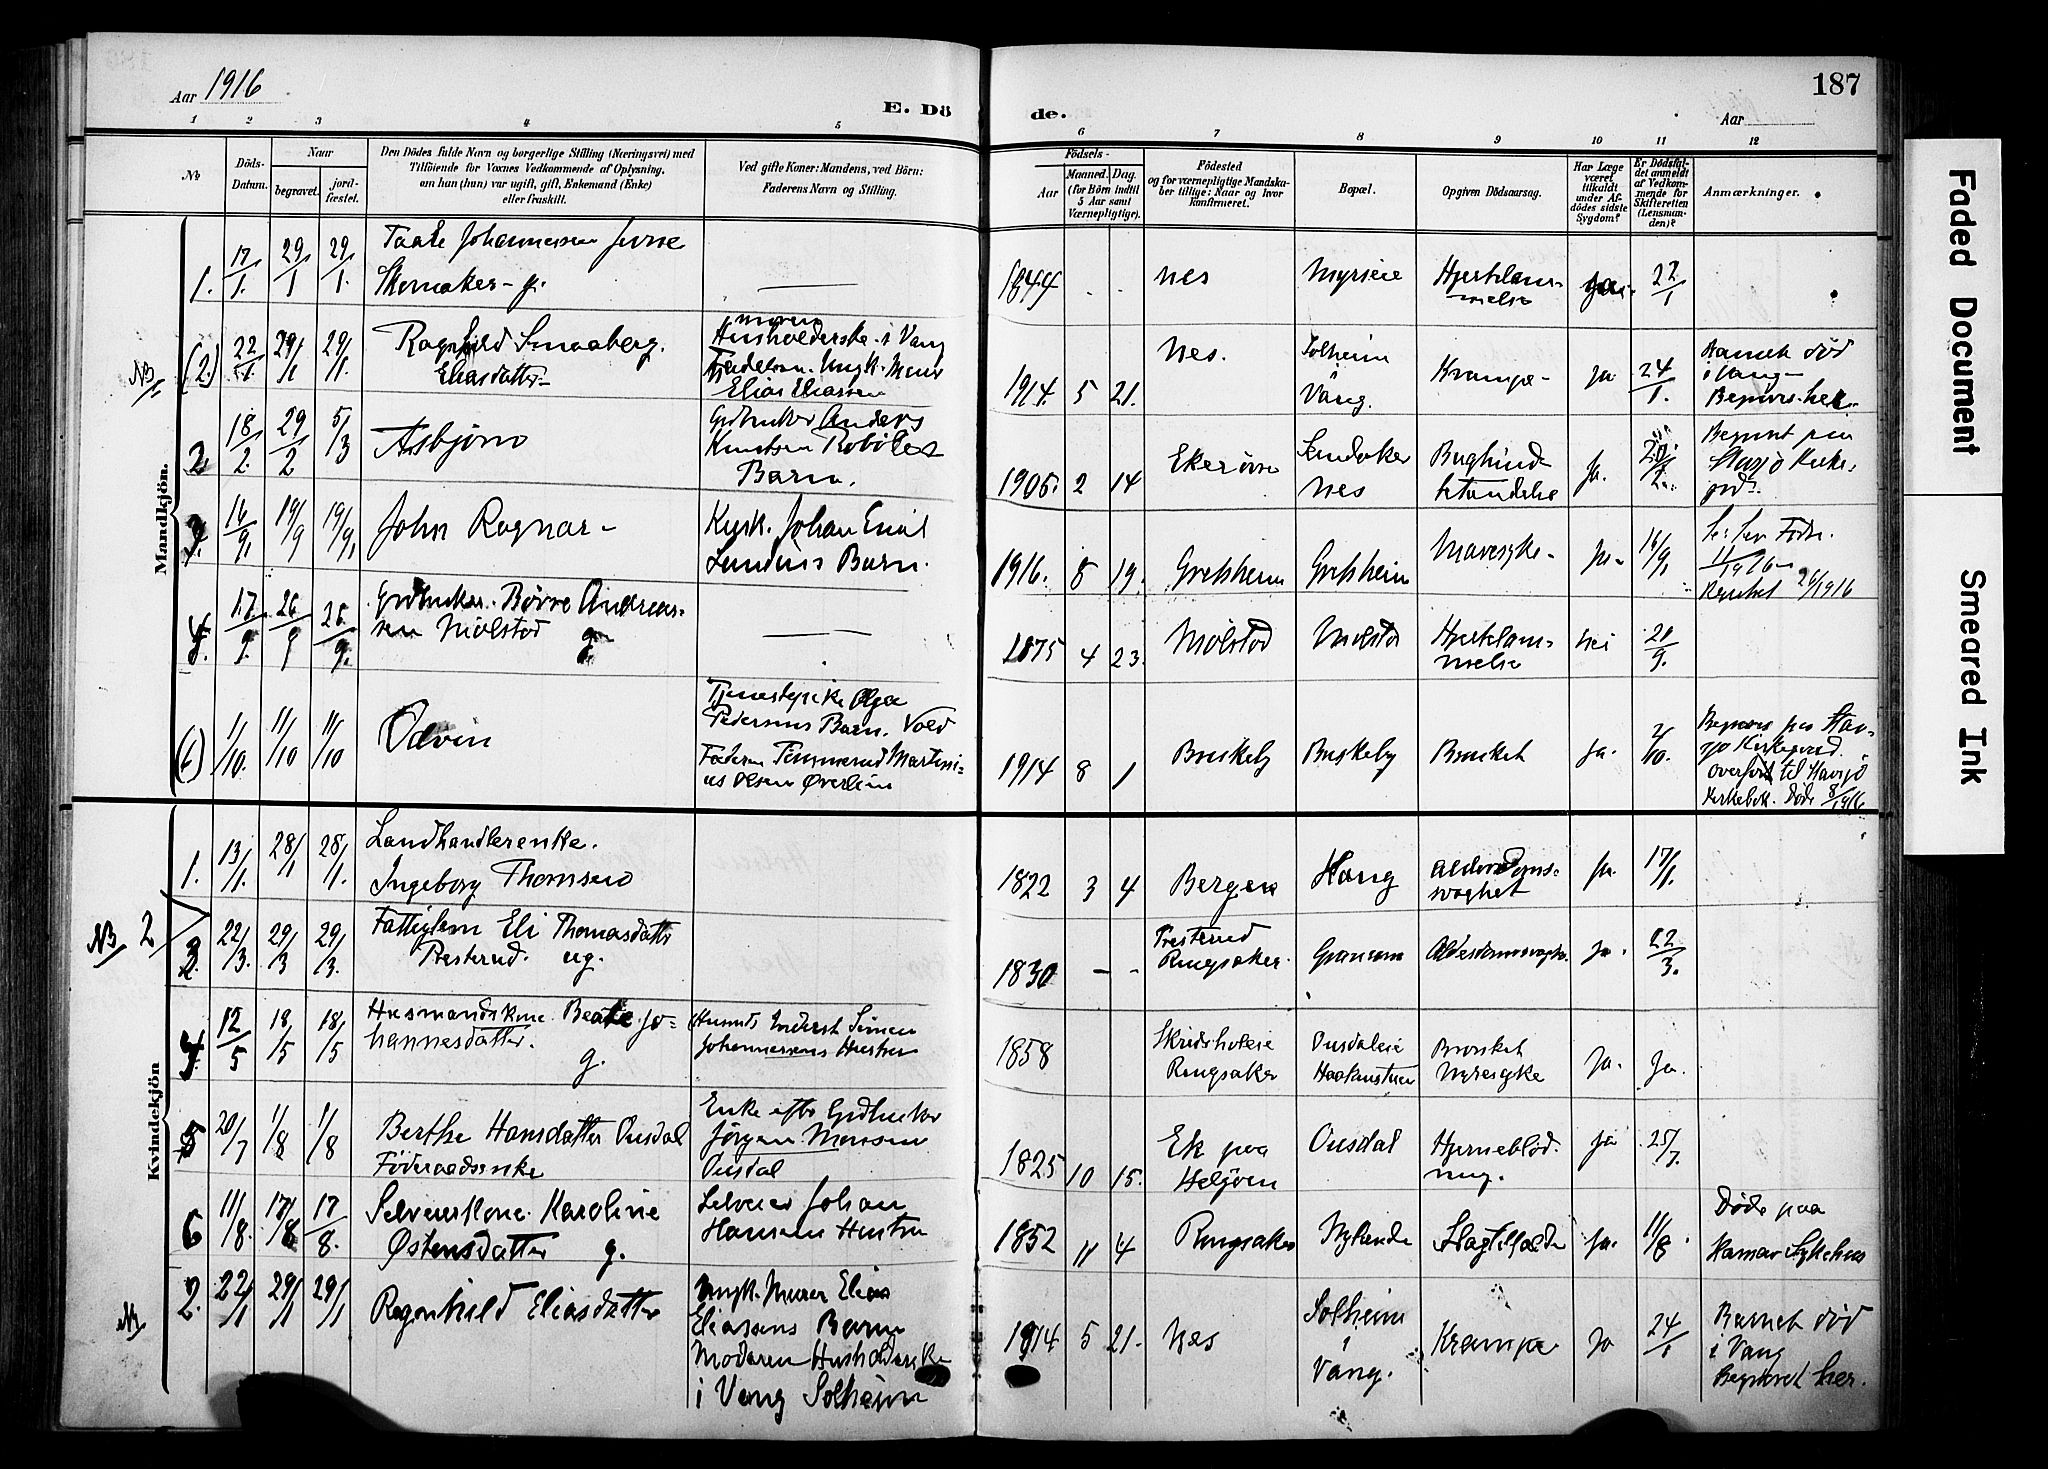 Aar 1916
E. Dö
de.
187
Aar
1 2 3 4 5 6 7 8 9 10 11 12
No
Döds-
Datum.
Naar
begravet.
jord-
fæstet.
Den Dödes fulde Navn og borgerlige Stilling (Næringsvei) med
Tilföiende for Voxnes Vedkommende af Oplysning,
om han (hun) var ugift, gift, Enkemand (Enke)
eller fraskilt.
Ved gifte Koner: Mandens, ved Börn:
Faderens Navn og Stilling.
Födsels-
Aar
Maaned. Dag.
(for Börn indtil
5 Aar samt
Værnepligtige).
Födested
og for værnepligtige Mandska-
ber tillige: Naar og hvor
konfirmeret.
Bopæl.
Opgiven Dödsaarsag.
Har Læge
været
tilkaldt
under Af-
dödes sidste
Sygdom?
Er Dödsfal-
det anmeldt
af Vedkom-
mende for
Skifteretten
(Lensman-
den)?
Anmærkninger.
Mandkjön.
1. 17/1. 29/1 29/1. Johannessen
Skomaker - g.
1844 - - Nes Hjertelam-
melse 22/1
NB (2) 22/1. 29/1 29/1. Ragnhild Smaaberg.
Eliasdatter
Husholderske i Vang
Elias Eliassen
1914. 5 21. Nes. Solheim
Vang. Krampe - Ja 24/1.
Barnet död
i Vang
2. 18/2. 29/2 5/3 Asbjörn
Grdbruker Anders
Knutsen
Barn.
1905. 2 14 Nes Ja.
Begravet paa
3. 16/9. 19/9 19/9. John Ragnar -
Kusk. Johan Emil
Lundens Barn.
1916. 8 19. Grefsheim Grefsheim Mavesyke - Ja - 16/9
26/1916
4. 17/9. 26/9 26/9. Grdbruker. Börre Andreas-
sen Molstad g.
1875 4 23. Molstad Molstad Hjertelam-
melse Nei 20/9.
1/10. 11/10 11/10 Odvin
Tjenestepike Olga
Pedersens Barn. Vold
Faderen Tømmermd Martini-
us Olsen Øverlien
1914 8 1 Buskeby Buskeby Brusket Ja. 2/10.
Kirkegaard.
overfört til Stavsjö
Kirkebok. Döde 8/1916
Kvindekjön
1. 13/1. 28/1 28/1. Landhandlerenke.
Ingeborg Thomsen
1822 3 4 Bergen Haug Alderdoms-
svaghet Ja. 17/1.
NB 2
22/3. 29/3 29/3. Fattiglem Eli Thomasdatter
Presterud. ug.
1830 - - Presterud
Ringsaker. Alderdomssvaghet. Ja. 22/3.
4. 12/5 18/5 18/5 Husmandskone Beate Jo-
hannesdatter. g.
Simen
Johannessens Hustru
1858 Ringsaker Ousdaleie
Brusket
Nyresyke Ja. Ja.
5 20/7 1/8 1/8 Berthe Hansdatter Ousdal
Föderaadsenke
Enke efter Grdbruker
Jörgen Monsen
Ousdal
1825 10 15. Ek paa
Helgöen Ousdal Hjerneblöd-
ning. Ja 25/7.
6 11/8. 17/8 17/8. Selveierkone. Karoline
Østensdatter g.
Selveier Johan
Hansens Hustru
1852 11 4 Ringsaker Nylende Slagtilfælde Ja. 11/8.
Döde paa
Hamar Sykehus
NB 2. 22/1 29/1 29/1 Ragnhild Eliasdatter
Ungk. Murer Elias
Eliassens Barn
Moderen Husholderske
i Vang Solheim
1914 5 21. Nes Solheim
i
Vang. Krampe Ja 24/1
Barnet död
i Vang
Begravet her.
Faded Document
Smeared Ink